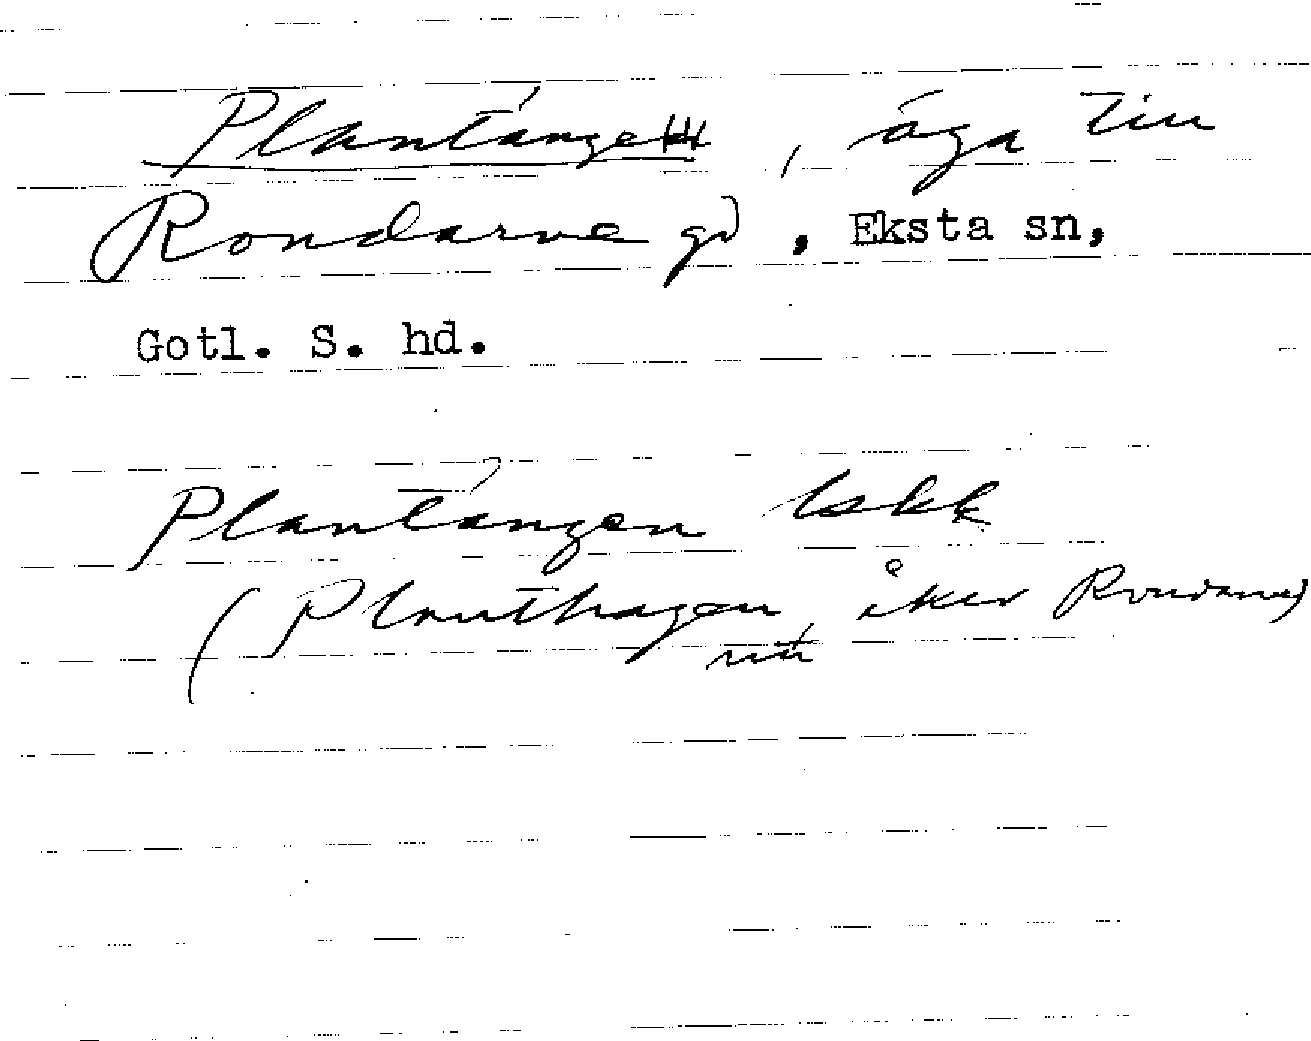 Plantänge, äga till
Rondarve gd, Eksta sn,
Gotl. S. hd.
Plantängen lskk
(Planthagen åker Rondarve)